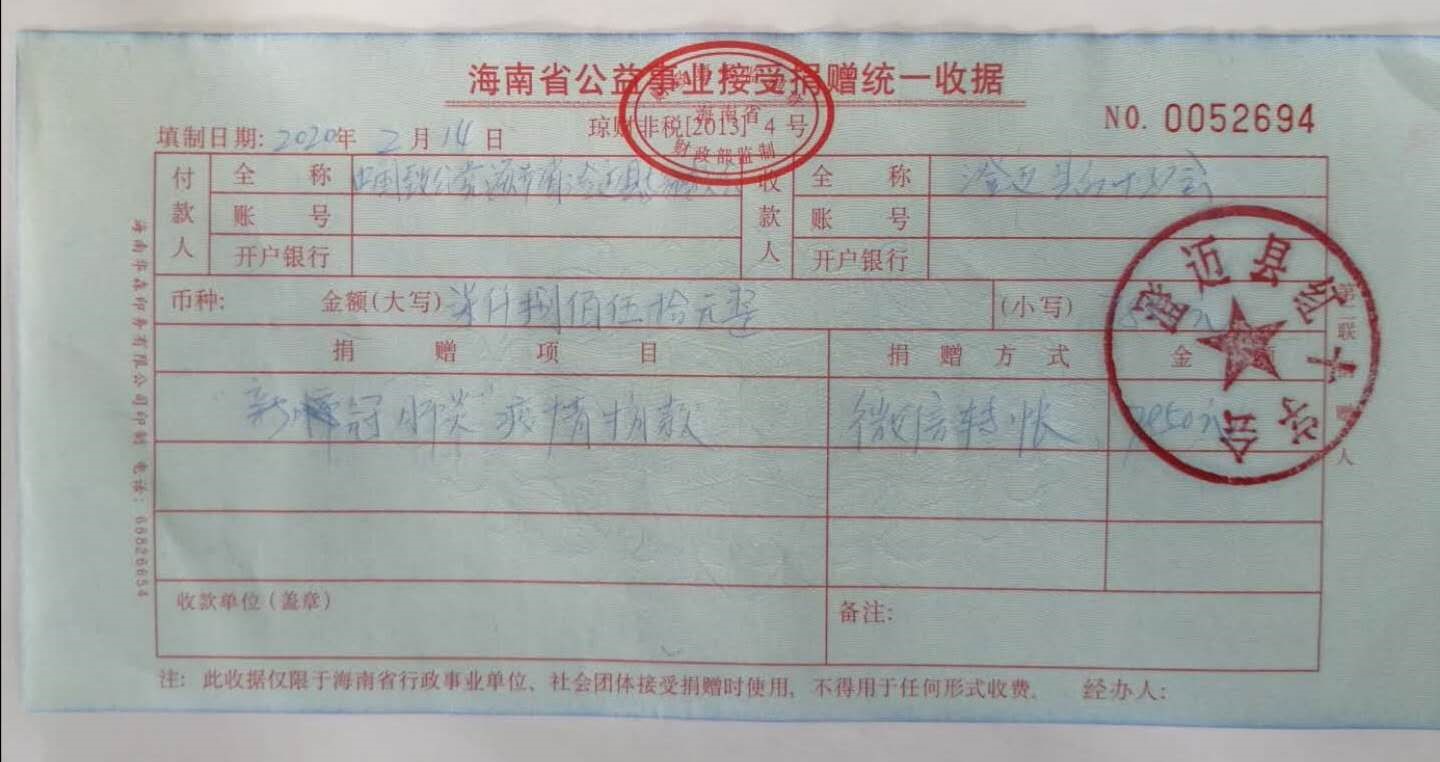 海南省公益事业接受捐赠统一收据
海南省
财政部监制
琼财非税[2013] 4 号
NO. 0052694
填制日期: 2020年 2 月 14 日
付款人 全称 收款人 全称 澄迈县红十字会
账号 账号
开户银行 开户银行
币种: 金额(大写) 柒仟捌佰伍拾元整 (小写)
捐赠项目 捐赠方式 金
新冠肺炎"疫情捐款 微信转帐 7850元
收款单位(盖章) 备注:
注: 此收据仅限于海南省行政事业单位、社会团体接受捐赠时使用, 不得用于任何形式收费。 经办人:
澄迈县红十字会
第二联
人
海南华森印务有限公司印制 电话: 68826654